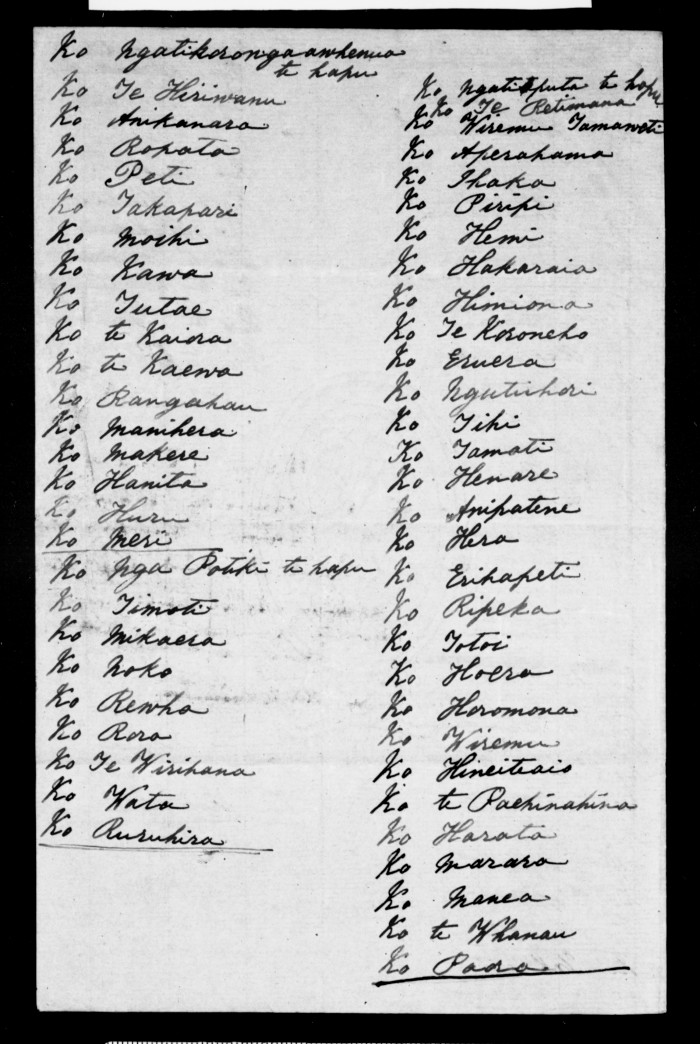 Ko Ngatikorongaawhenua
te hapu
Ko Te Hiriwanu
Ko Anikanara
Ko Ropata
Ko Peti
Ko Takapari
Ko Moihi
Ko Kawa
Ko Tutae
Ko te Kaiora
Ko te Kaewa
Ko Rangahau
Ko Manihera
Ko Makere
Ko Hanita
Ko Huru
Ko Meri
Ko Nga Potiki te hapu
Ko Timoti
Ko Mikaera
Ko Noko
Ko Rewha
Ko Rora
Ko Te Wirihana
Ko Wata
Ko Ruruhira
Ko te hapu
Ko Te Retimana
Ko Wiremu Tamaweti
Ko Aperahama
Ko Ihaka
Ko Piripi
Ko Hemi
Ko Hakaraia
Ko Himiona
Ko Te Koroneho
Ko Eruera
Ko
Ko Tihi
Ko Tamati
Ko Henare
Ko Anihatene
Ko Hera
Ko Erihapeti
Ko Ripeka
Ko Totoi
Ko Hoera
Ko Horomona
Ko Wiremu
Ko Hineiteaio
Ko te Paehinahina
Ko Harata
Ko Marara
Ko Manea
Ko te Whanau
Ko Paora